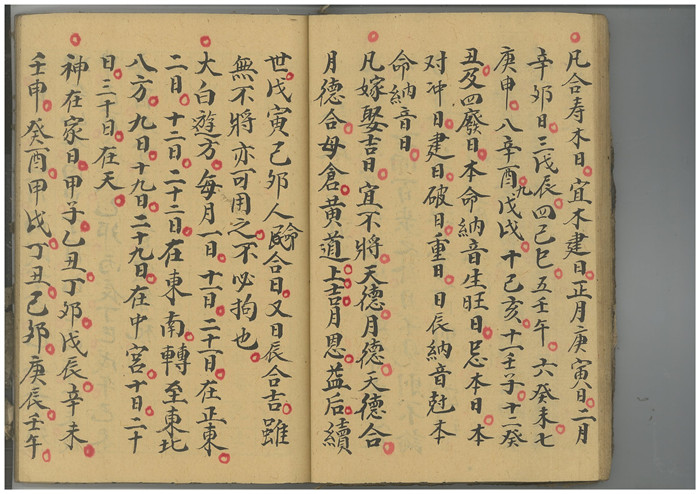 凡合寿木日宜木建日正月庚寅日二月
辛卯日三戊辰四己巳五壬午六癸未七
庚申八辛酉九戊戌十己亥十一壬子十二癸
丑及四廢日本命納音生旺日忌本日本
对冲日建日破日重日日辰納音尅本
命納音日
凡嫁娶吉日宜不將天德月德天德合
月德合母倉黄道上吉月恩益后續
世戊寅己卯人命合日又日辰合吉雖
無不將亦可用之不必拘也
大白遊方每月一日十一日二十一日在正東
二日十二日二十二日在東南轉至東北
八方九日十九日二十九日在中宮十日二十
日三十日在天
神在家日甲子乙丑丁卯戊辰辛未
壬申癸酉甲戌丁丑己卯庚辰壬午